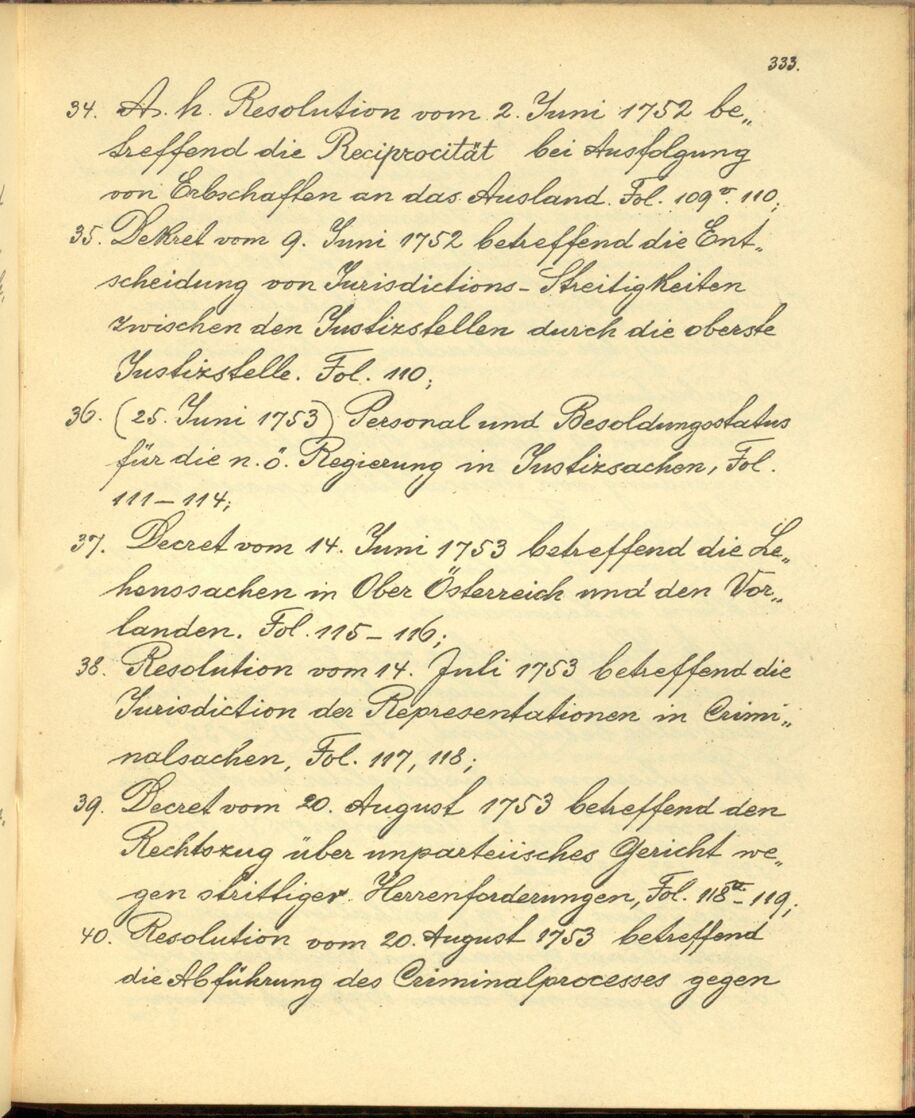 333.
34. A. h. Resolution vom 2. Juni 1752 be„
treffend die Reciprocität bei Ausfolgung
von Erbschaften an das Ausland. Fol. 109v. 110;
35. Dekret vom 9. Juni 1752 betreffend die Ent„
scheidung von Jurisdictions-Streitigkeiten
zwischen den Justizstellen durch die oberste
Justizstelle. Fol. 110;
36. (25. Juni 1753) Personal und Besoldungsstatus
für die n. ö. Regierung in Justizsachen, Fol.
111–114;
37. Decret vom 14. Juni 1753 betreffend die Le„
henssachen in Ober Österreich und den Vor„
landen. Fol. 115–116;
38. Resolution vom 14. Juli 1753 betreffend die
Jurisdiction der Representationen in Crimi„
nalsachen, Fol. 117, 118;
39. Decret vom 20. August 1753 betreffend den
Rechtszug über unparteiisches Gericht we„
gen strittiger Herrenforderungen, Fol. 118v–119;
40. Resolution vom 20. August 1753 betreffend
die Abführung des Criminalprocesses gegen